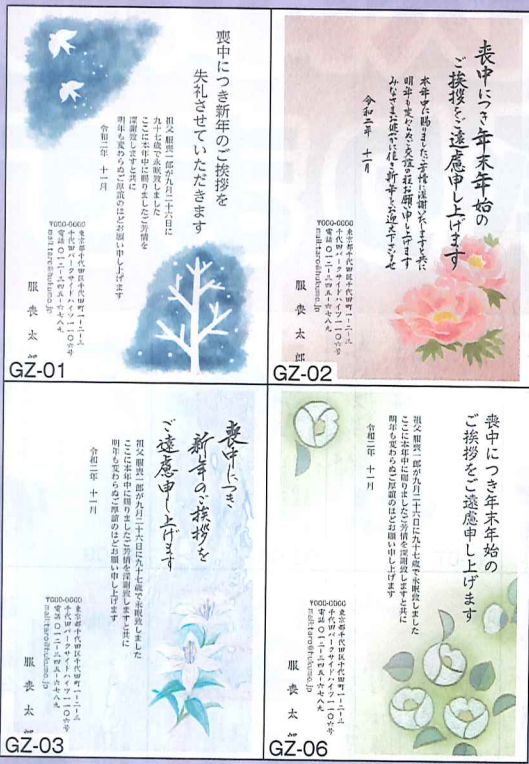 喪中につき新年のご挨拶を
失礼させていただきます
祖父 服喪一郎が九月二十六日に
九十七歳で永眠致しました
ここに本年中に賜りましたご芳情を
深謝致しますと共に
明年も変わらぬご厚誼のほどお願い申し上げます
令和二年 十一月
〒000-0000
東京都千代田区千代田町一-二-三
千代田パークサイドハイツ一一〇六号
電話 〇一二-三四五-六七八九
mail:taro@hukumo.jp
服 喪 太 郎
GZ-01
喪中につき年末年始の
ご挨拶をご遠慮申し上げます
本年中に賜りましたご芳情に深謝いたしますと共に
明年も変わらぬご交誼のほどお願い申し上げます
みなさまお健やかに佳き新年をお迎え下さいませ
令和二年 十一月
〒000-0000
東京都千代田区千代田町一-二-三
千代田パークサイドハイツ一一〇六号
電話 〇一二-三四五-六七八九
mail:taro@hukumo.jp
服 喪 太 郎
GZ-02
喪中につき
新年のご挨拶を
ご遠慮申し上げます
祖父 服喪一郎が九月二十六日に九十七歳で永眠致しました
ここに本年中に賜りましたご芳情を深謝致しますと共に
明年も変わらぬご厚誼のほどお願い申し上げます
令和二年 十一月
〒000-0000
東京都千代田区千代田町一-二-三
千代田パークサイドハイツ一一〇六号
電話 〇一二-三四五-六七八九
mail:taro@hukumo.jp
服 喪 太 郎
GZ-03
喪中につき年末年始の
ご挨拶をご遠慮申し上げます
祖父 服喪一郎が九月二十六日に九十七歳で永眠致しました
ここに本年中に賜りましたご芳情を深謝致しますと共に
明年も変わらぬご厚誼のほどお願い申し上げます
令和二年 十一月
〒000-0000
東京都千代田区千代田町一-二-三
千代田パークサイドハイツ一一〇六号
電話 〇一二-三四五-六七八九
mail:taro@hukumo.jp
服 喪 太 郎
GZ-06